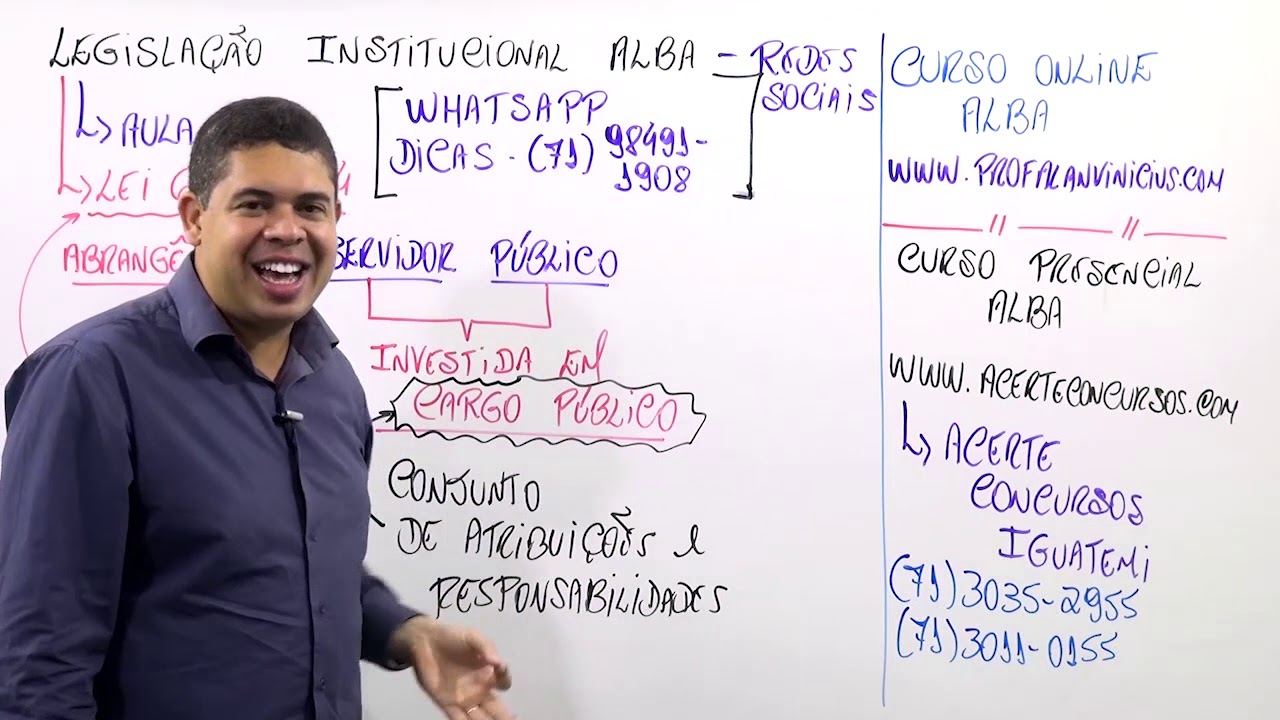 LEGISLAÇÃO INSTITUCIONAL ALBA - REDES SOCIAIS
↳ AULA
↳ LEI
WHATSAPP
DICAS - (71) 98491-
1908
SERVIDOR PÚBLICO
INVESTIDA EM
CARGO PÚBLICO
CONJUNTO
DE ATRIBUIÇÕES E
RESPONSABILIDADES
CURSO ONLINE
ALBA
WWW.PROFALANVINICIUS.COM
CURSO PRESENCIAL
ALBA
WWW.ACERTECONCURSOS.COM
↳ ACERTE
CONCURSOS
IGUATEMI
(71) 3035-2955
(71) 3011-0155